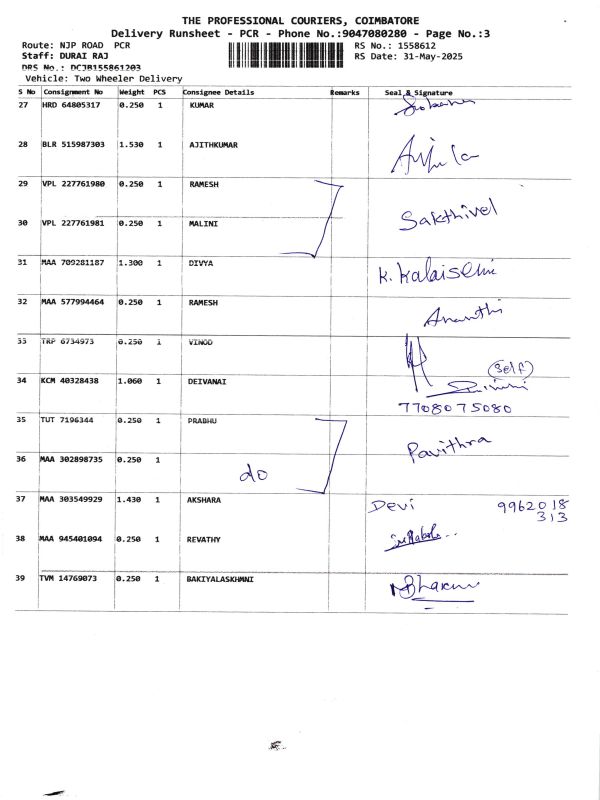 THE PROFESSIONAL COURIERS, COIMBATORE
Delivery Runsheet - PCR - Phone No.:9047080280 - Page No.:3
Route: NJP ROAD PCR
RS No.: 1558612
Staff: DURAI RAJ
RS Date: 31-May-2025
DRS No.: DCJB155861203
Vehicle: Two Wheeler Delivery
S No Consignment No Weight PCS Consignee Details Remarks Seal & Signature
27 HRD 64805317 0.250 1 KUMAR
28 BLR 515987303 1.530 1 AJITHKUMAR
29 VPL 227761980 0.250 1 RAMESH
Sakthivel
30 VPL 227761981 0.250 1 MALINI
31 MAA 709281187 1.300 1 DIVYA K. Kalaiselvi
32 MAA 577994464 0.250 1 RAMESH Ananthi
33 TRP 6734973 0.250 1 VINOD
(Self)
34 KCM 40328438 1.060 1 DEIVANAI
7708075080
35 TUT 7196344 0.250 1 PRABHU
Pavithra
36 MAA 302898735 0.250 1 do
37 MAA 303549929 1.430 1 AKSHARA Devi 9962018
313
38 MAA 945401094 0.250 1 REVATHY
39 TVM 14769073 0.250 1 BAKIYALASKHMNI